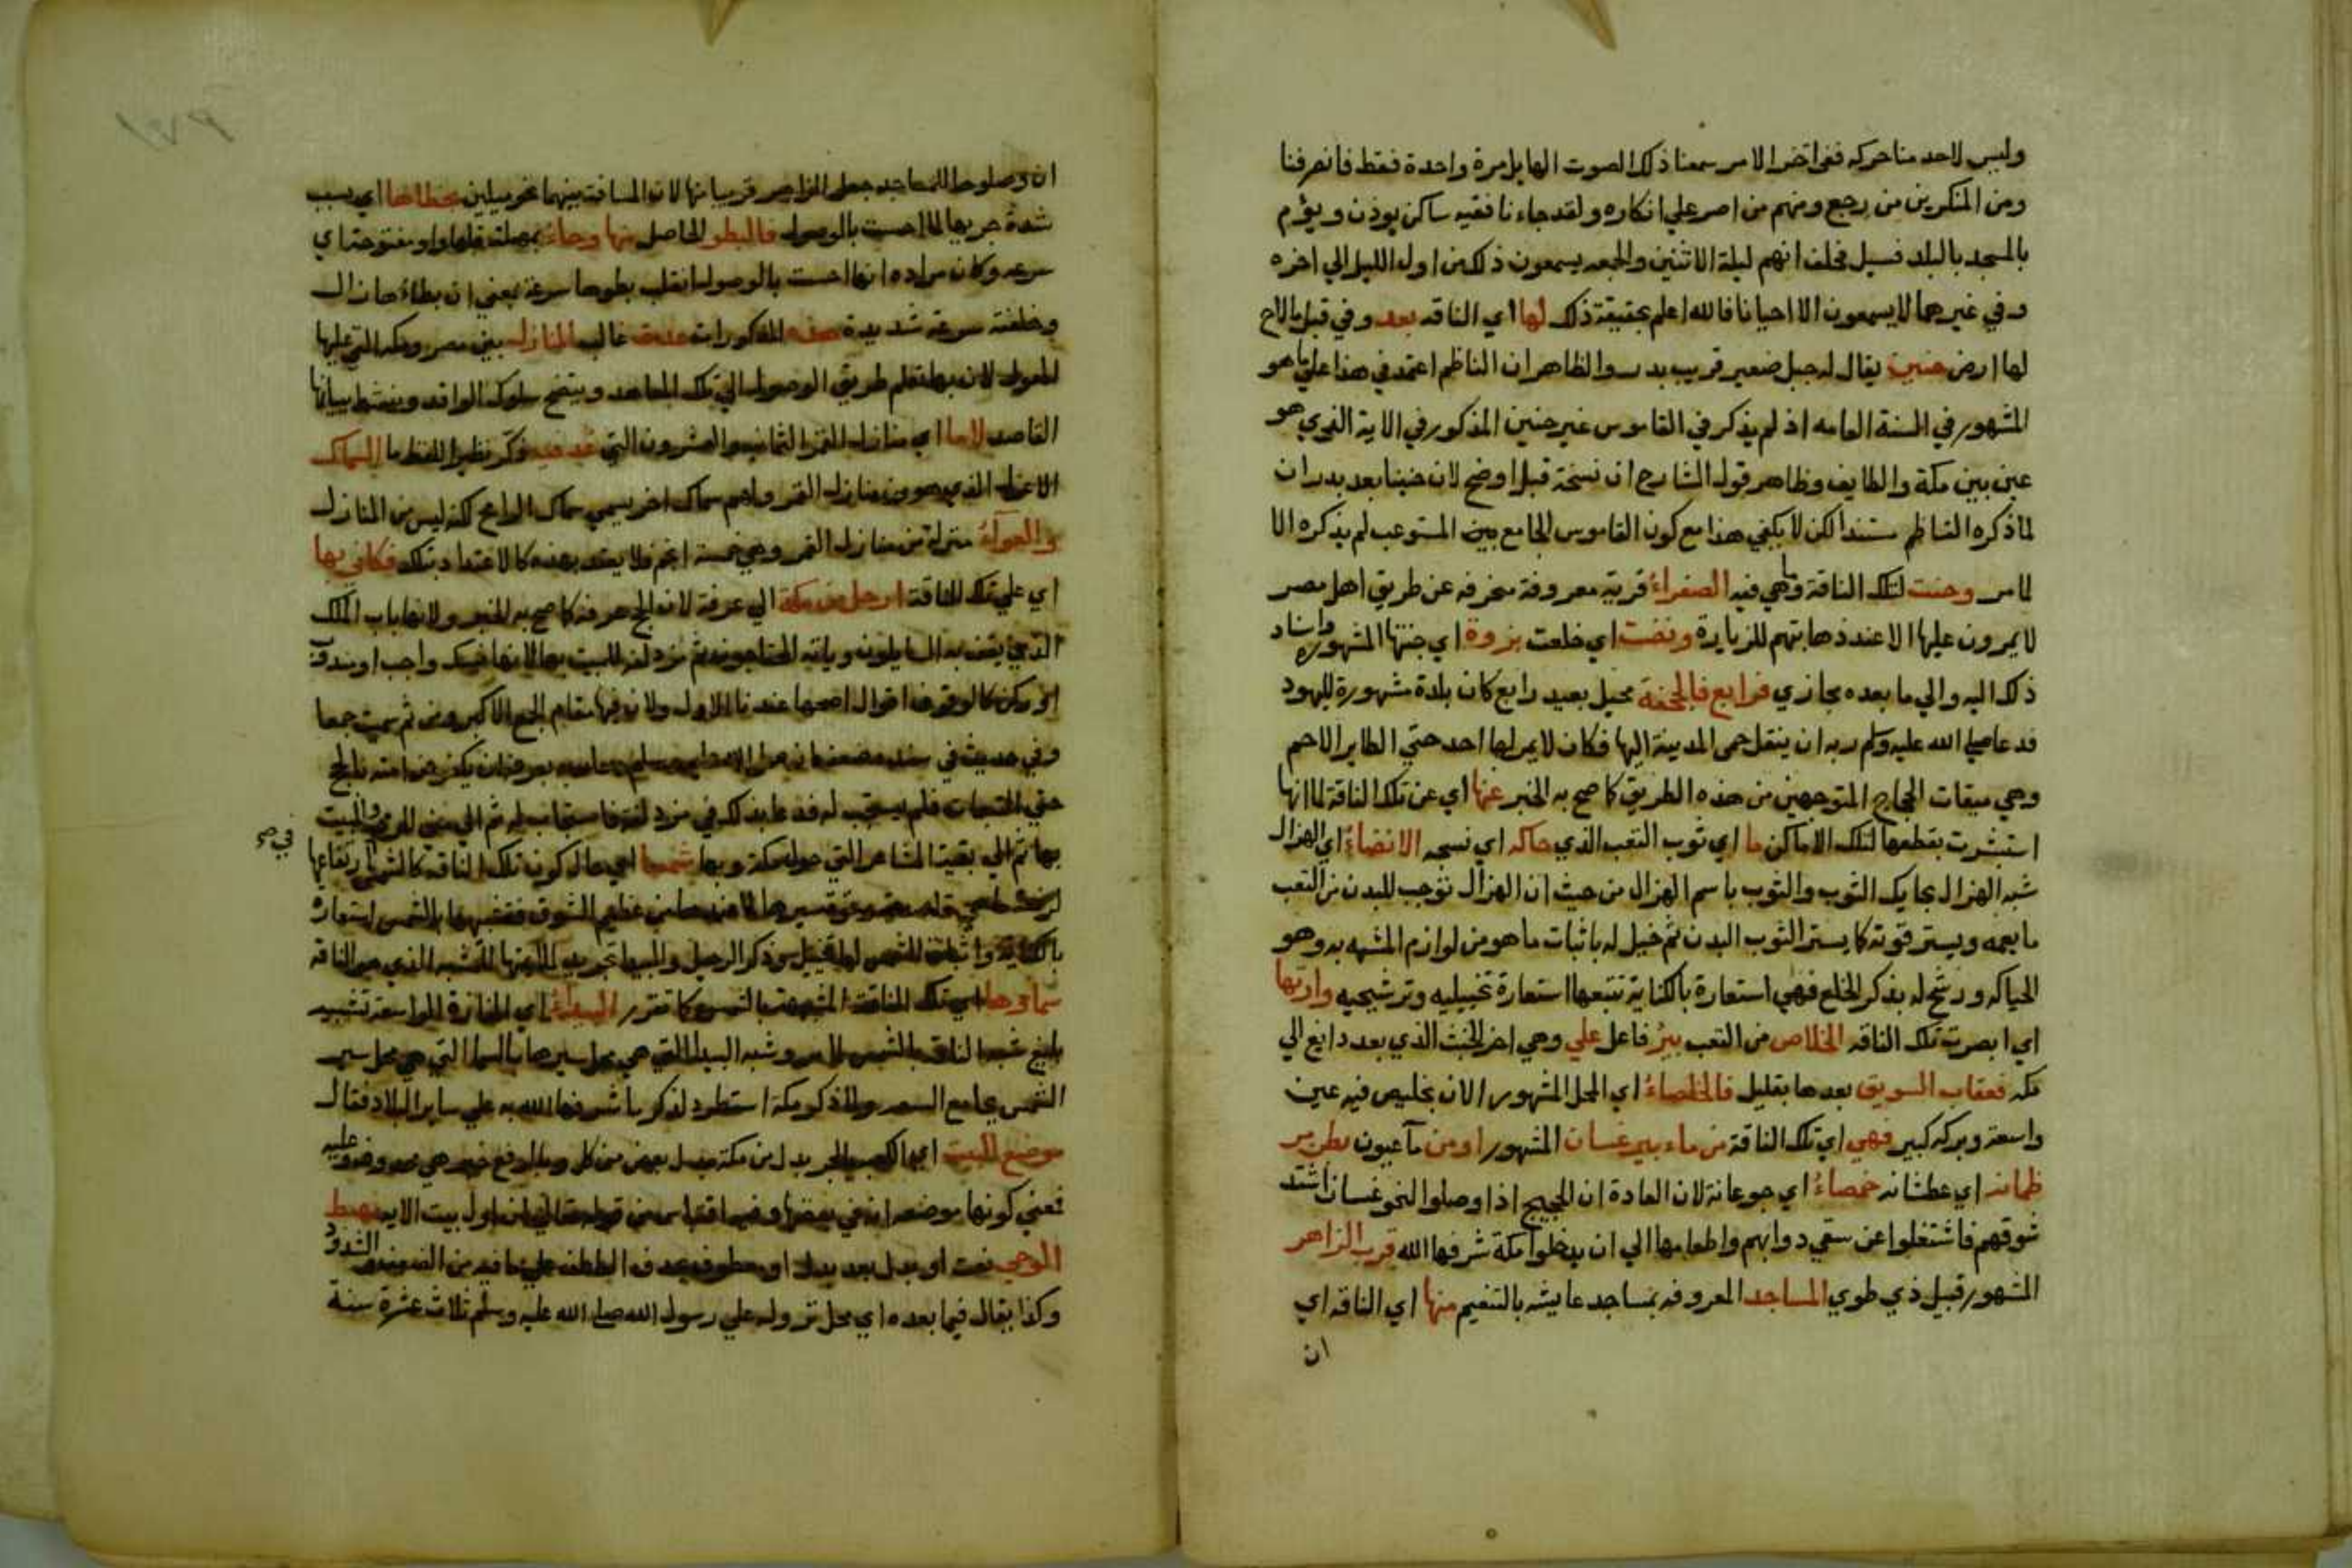 وليس لاحد منا حركه ففي اخر الامر سمعنا ذلك الصوت الهايل مرة واحدة فقط فانصرفنا
ومن المنكرين من رجع ومنهم من اصر علي انكاره ولقد جاءنا فقيه ساكن يوذن ويؤم
بالمسجد بالبلد فسيل فحلف انهم ليلة الاثنين والجمعه يسمعون ذلك من اول الليل الي اخره
وفي غيرهما لا يسمعون الا احيانا فالله اعلم بحقيقة ذلك لها اي الناقه بعد وفي قبل مالاح
لها ارض حنين يقال له جبل صغير قريب بدر والظاهر ان الناظم اعتمد في هذا علي ما هو
المشهور في السنة العامه اذ لم يذكر في القاموس غير حنين المذكور في الاية الذي هو
عين بين مكة والطايف وظاهر قول الشارح ان نسخة قبل اوضح لان حنينا بعد بدر ان
لما ذكره الناظم مستندا لكن لا يكفي هذا مع كون القاموس الجامع بين المستوعب لم يذكره الا
لما مر وحنت لتلك الناقة وما هي فيه الصفراء قرية معروفة منحرفه عن طريق اهل مصر
لا يمرون عليها الا عند ذهابهم للزيارة ونضت اي خلعت بزوة اي جنتها المشهوره واسناد
ذلك اليه والي ما بعده مجازي فرابع فالجحفة محيل بعيد رابع كان بلدة مشهورة لليهود
فدعا صلي الله عليه وسلم ربه ان ينقل حمى المدينة اليها فكان لا يمر لها احد حتي الطاير الاحم
وهي ميقات الحجاج المتوجهين من هذه الطريق كما صح به الخبر عنها اي عن تلك الناقة لما انها
استشرت بقطعها لتلك الاماكن ما اي ثوب التعب الذي حاكه اي نسجه الانضاء اي الهزال
شبه الهزال بحايك الثوب والثوب باسم الهزال من حيث ان الهزال توجب للبدن من التعب
ما يعمه ويستر قوته كما يستر الثوب البدن ثم خيل له باثبات ما هو من لوازم المشبه به وهو
الحياكه ورشح له بذكر الخلع فهي استعارة بالكناية تتبعها استعارة تخييليه وترشيحيه وارتها
اي ابصرت تلك الناقه الخلاص من التعب بير فاعل علي وهي اخر الخبث الذي بعد رابع الي
مكه فعقاب السويق بعدها بقليل فالخلصاء اي المحل المشهور الان بخليص فيه عين
واسعة وبركه كبير فهي اي تلك الناقة من ماء بير غسان المشهور او من ما عيون بطن مر
ظمانه اي عطشانه خمصاء اي جوعانة لان العادة ان الحجيج اذا وصلوا لنحو غسان اشتد
شوقهم فاشتغلوا عن سقي دوابهم واطعامها الي ان يدخلوا مكة شرفها الله قرب الزاهر
المشهور قبيل ذي طوي المساجد المعروفه بمساجد عايشه بالتنعيم منها اي الناقه اي
ان
ان وصلوها للمساجد جعل الزاهر قريبا منها لان المسافة بينهما نحو ميلين بخطاها اي بسبب
شدة جريها لما احست بالوصول فالبطو الحاصل منها وحاء بمهملة قبلها واو مفتوحة اي
سرعه وكان مراده انها احست بالوصول انقلب بطوها سرعة بمعني ان بطاءها زال
وخلفته سرعة شديدة هذه المذكورات عدت غالب المنازل بين مصر ومكه التي عليها
المعول لان بها تعلم طريق الوصول الي تلك المعاهد ويتضح سلوك الوافد وينشط ببيانها
القاصد لا ما اي منازل القمر الثمانيه والعشرون التي عد فيه ذكر نظرا للفظ ما السماك
الاعزل الذي هو من منازل القمر ولهم سماك اخر يسمي سماك الرامح لكنه ليس من المنازل
والعواء منزلة من منازل القمر وهي خمسة انجم فلا يعتد بهذه كالاعتداد بتلك فكاني بها
اي علي تلك الناقة ارحل من مكة الي عرفة لان الحج عرفة كما صح به الخبر ولانها باب الملك
الذي يقف به السايلون ويلته المحتاجون ثم مزدلفة للمبيت بها لانها حينئذ واجب او مندوب
او ركن كالوقوف اقوال اصحها عندنا الاول ولان فيها مقام الجمع الاكبر ومن ثم سميت جمعا
وفي حديث في سنده ضعف ان صلي الله عليه وسلم
حتي التبعات فلم يستجب له فدعا بذلك في مزدلفة فاستجاب له ثم الي مني للرمي والمبيت
بها ثم الي بقية المشاعر التي حول مكة وبها شمسا اي حال كون تلك الناقه كالشمس في ارتفاعها
بالكناية واثبات الشمس لها تخييل وذكر الرحيل والمبيت تجريد لملايمتها للمشبه الذي هو الناقه
سماوها اي تلك الناقة المشبهة بالشمس كما تقرر البيداء اي المفازة الواسعة تشبيه
بليغ شبه الناقة بالشمس لما مر وشبه البيدا التي هي محل سيرها بالسما التي هي محل سير
الشمس بجامع السعه ولما ذكر مكة استطرد لذكر ما شرفها الله به علي ساير البلاد فقال
موضع البيت اي الكعبه بالجر بدل من مكة بدل بعض من كل وبالرفع خبر هي وعليه
فمعني كونها موضعه انه في بعضها وفيه اقتباس من قوله تعالي ان اول بيت الايه مهبط
الوحي نعت او بدل بعد بدل او معطوف بحذف العاطف علي ما فيه من الضعف والشذوذ
وكذا يقال فيما بعده اي محل نزوله علي رسول الله صلي الله عليه وسلم ثلاث عشرة سنة